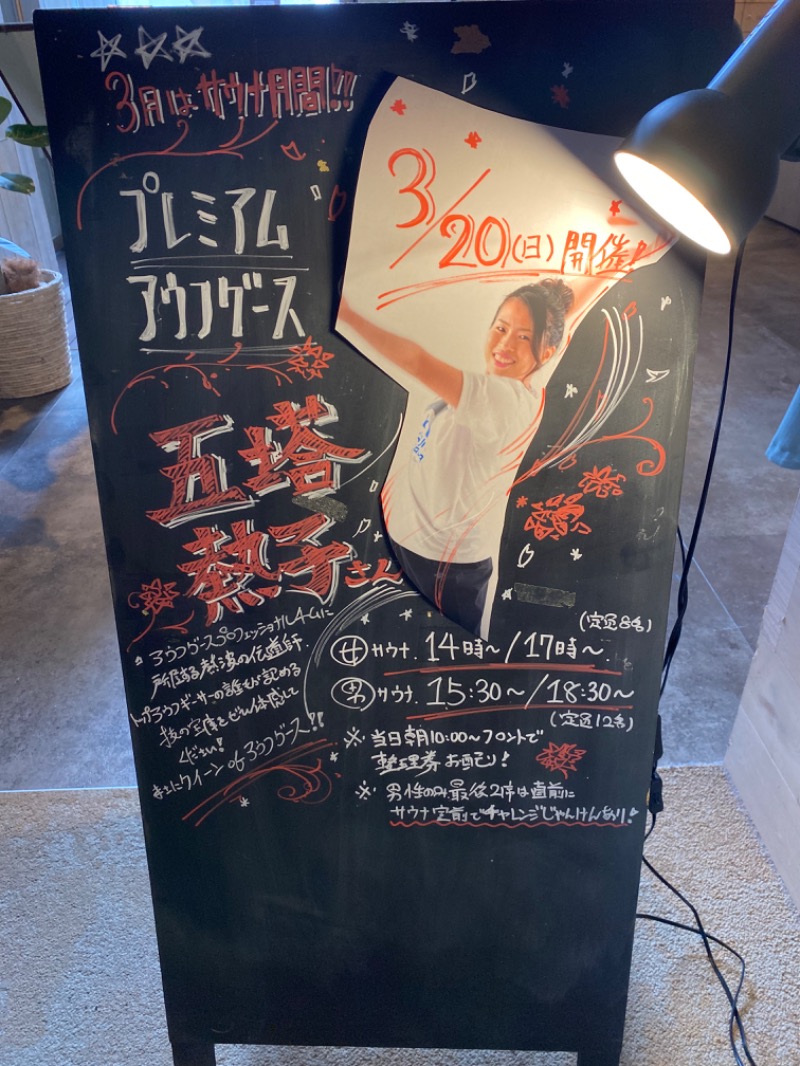 3月はサウナ月間!!
3/20(日)開催!
プレミアム
アウフグース
五塔
熱子さん
アウフグースプロフェッショナルチームに
所属する熱波の伝道師。
トップアウフギーサーの誰もが認める
技の宝庫をぜひ体感して
ください!
まさにクイーン of アウフグース!!
(定員8名)
女サウナ. 14時~/17時~.
男サウナ. 15:30~/18:30~
(定員12名)
※ 当日朝10:00~フロントで
整理券お配り!
※ 男性のみ最後2席は直前に
サウナ室前でチャレンジじゃんけんあり!